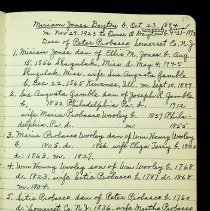 Miriam Jones Denton b. Oct 23, 1894
m. Nov 29, 1923 to Omer B
Desc of Peter Probasco Somerset Co. N.J.
1. Miriam Jones dau of Ellis M. Jones b. Aug
15, 1856 Shuqulak, Miss. d. May 4, 1945
Shuqulak, Miss. wife Sue Augusta Gamble
b. Dec 22, 1865 m.
2. Sue Augusta Gamble dau of Joseph R. Gamble
b. 1832 Philadelphia Pa. d. 1912
wife Maria Probasco Wooley b. 1837 Phila-
delphia, Pa. d. m 1855
3. Maria Probasco Wooley dau of Wm Henry Wooley
b. 1805 d. 1866 wife Eliza b.
d. 1863 m. 1837
4. Wm Henry Wooley son of Wm Wooley b. 1768
d. 1823 wife Letia Probasco b. 1787 d. 1868
m. 1804
5. Letia Probasco dau of Peter Probasco b. 1760
d. Somerset Co. N.J. 1836 wife Martha Probasco